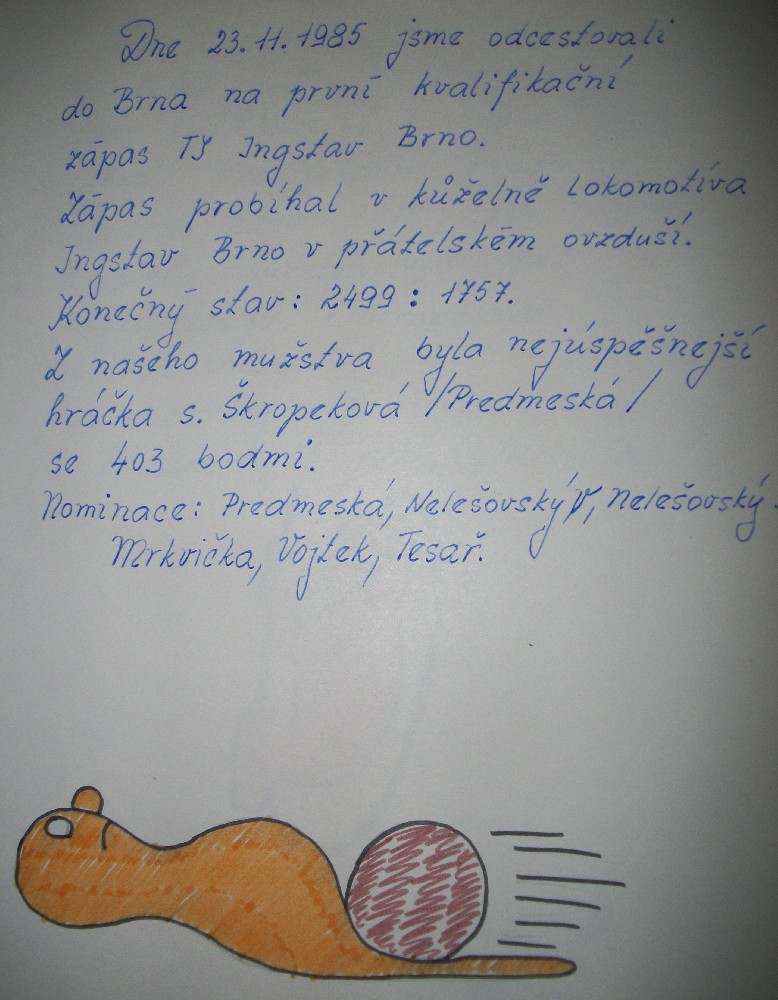 Dne 23.11.1985 jsme odcestovali
do Brna na první kvalifikační
zápas TJ Ingstav Brno.
Zápas probíhal v kůželně lokomotíva
Ingstav Brno v přátelském ovzduší.
Konečný stav: 2499 : 1757.
Z našeho mužstva byla nejúspěšnejší
hráčka s. Škropeková /Predmeská/
se 403 bodmi.
Nominace: Predmeská, Nelešovský V, Nelešovský.
Mrkvička, Vojtek, Tesař.